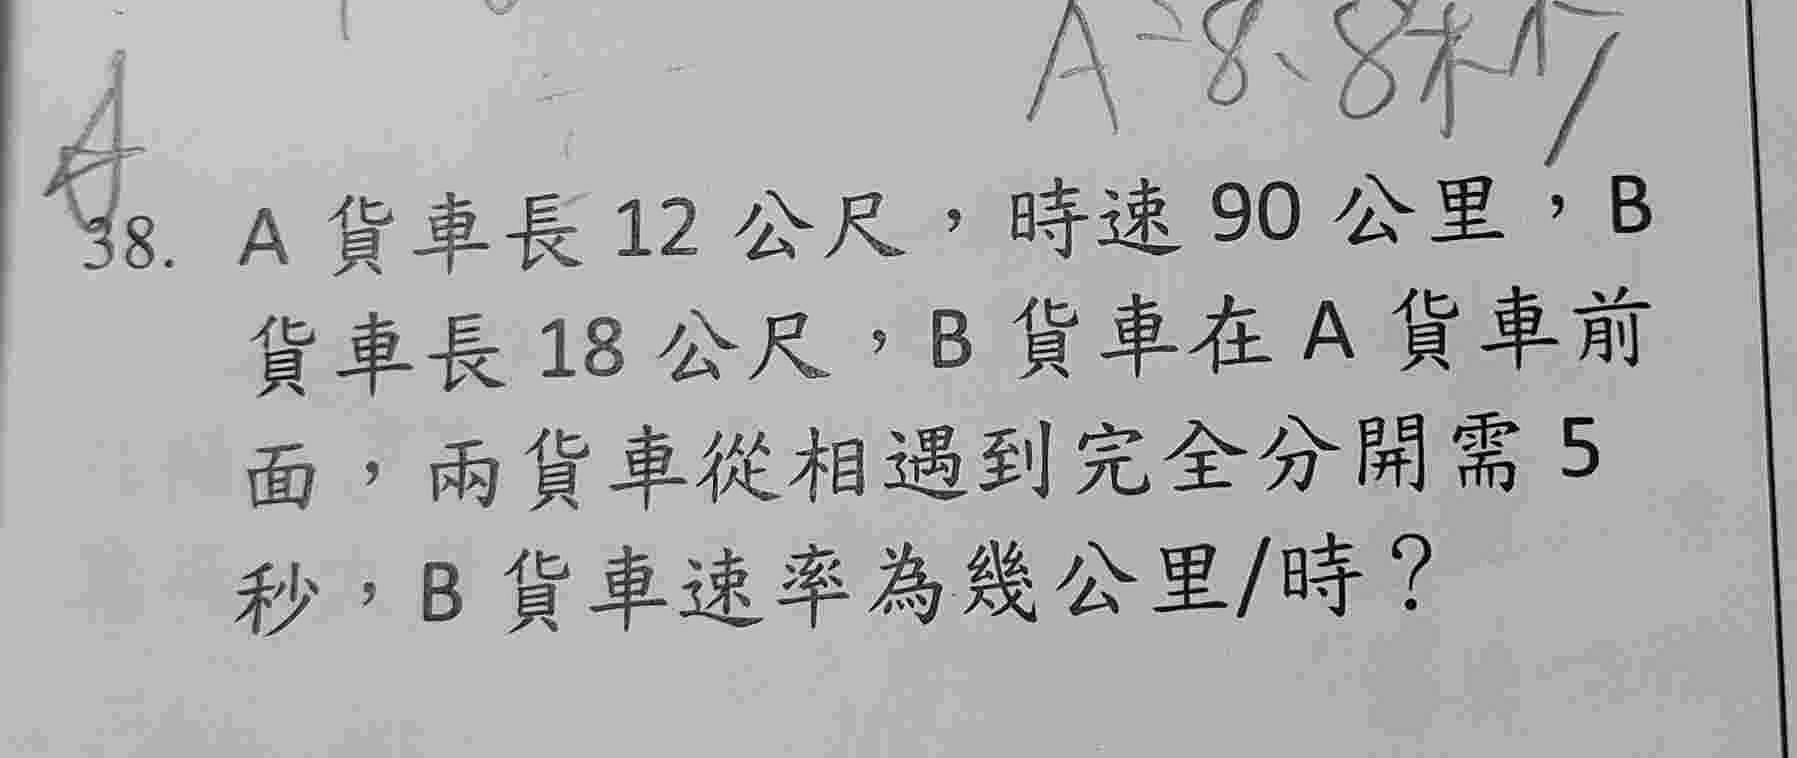 A=8、8秒
38. A 貨車長 12 公尺，時速 90 公里，B
貨車長 18 公尺，B 貨車在 A 貨車前
面，兩貨車從相遇到完全分開需 5
秒，B 貨車速率為幾公里/時？